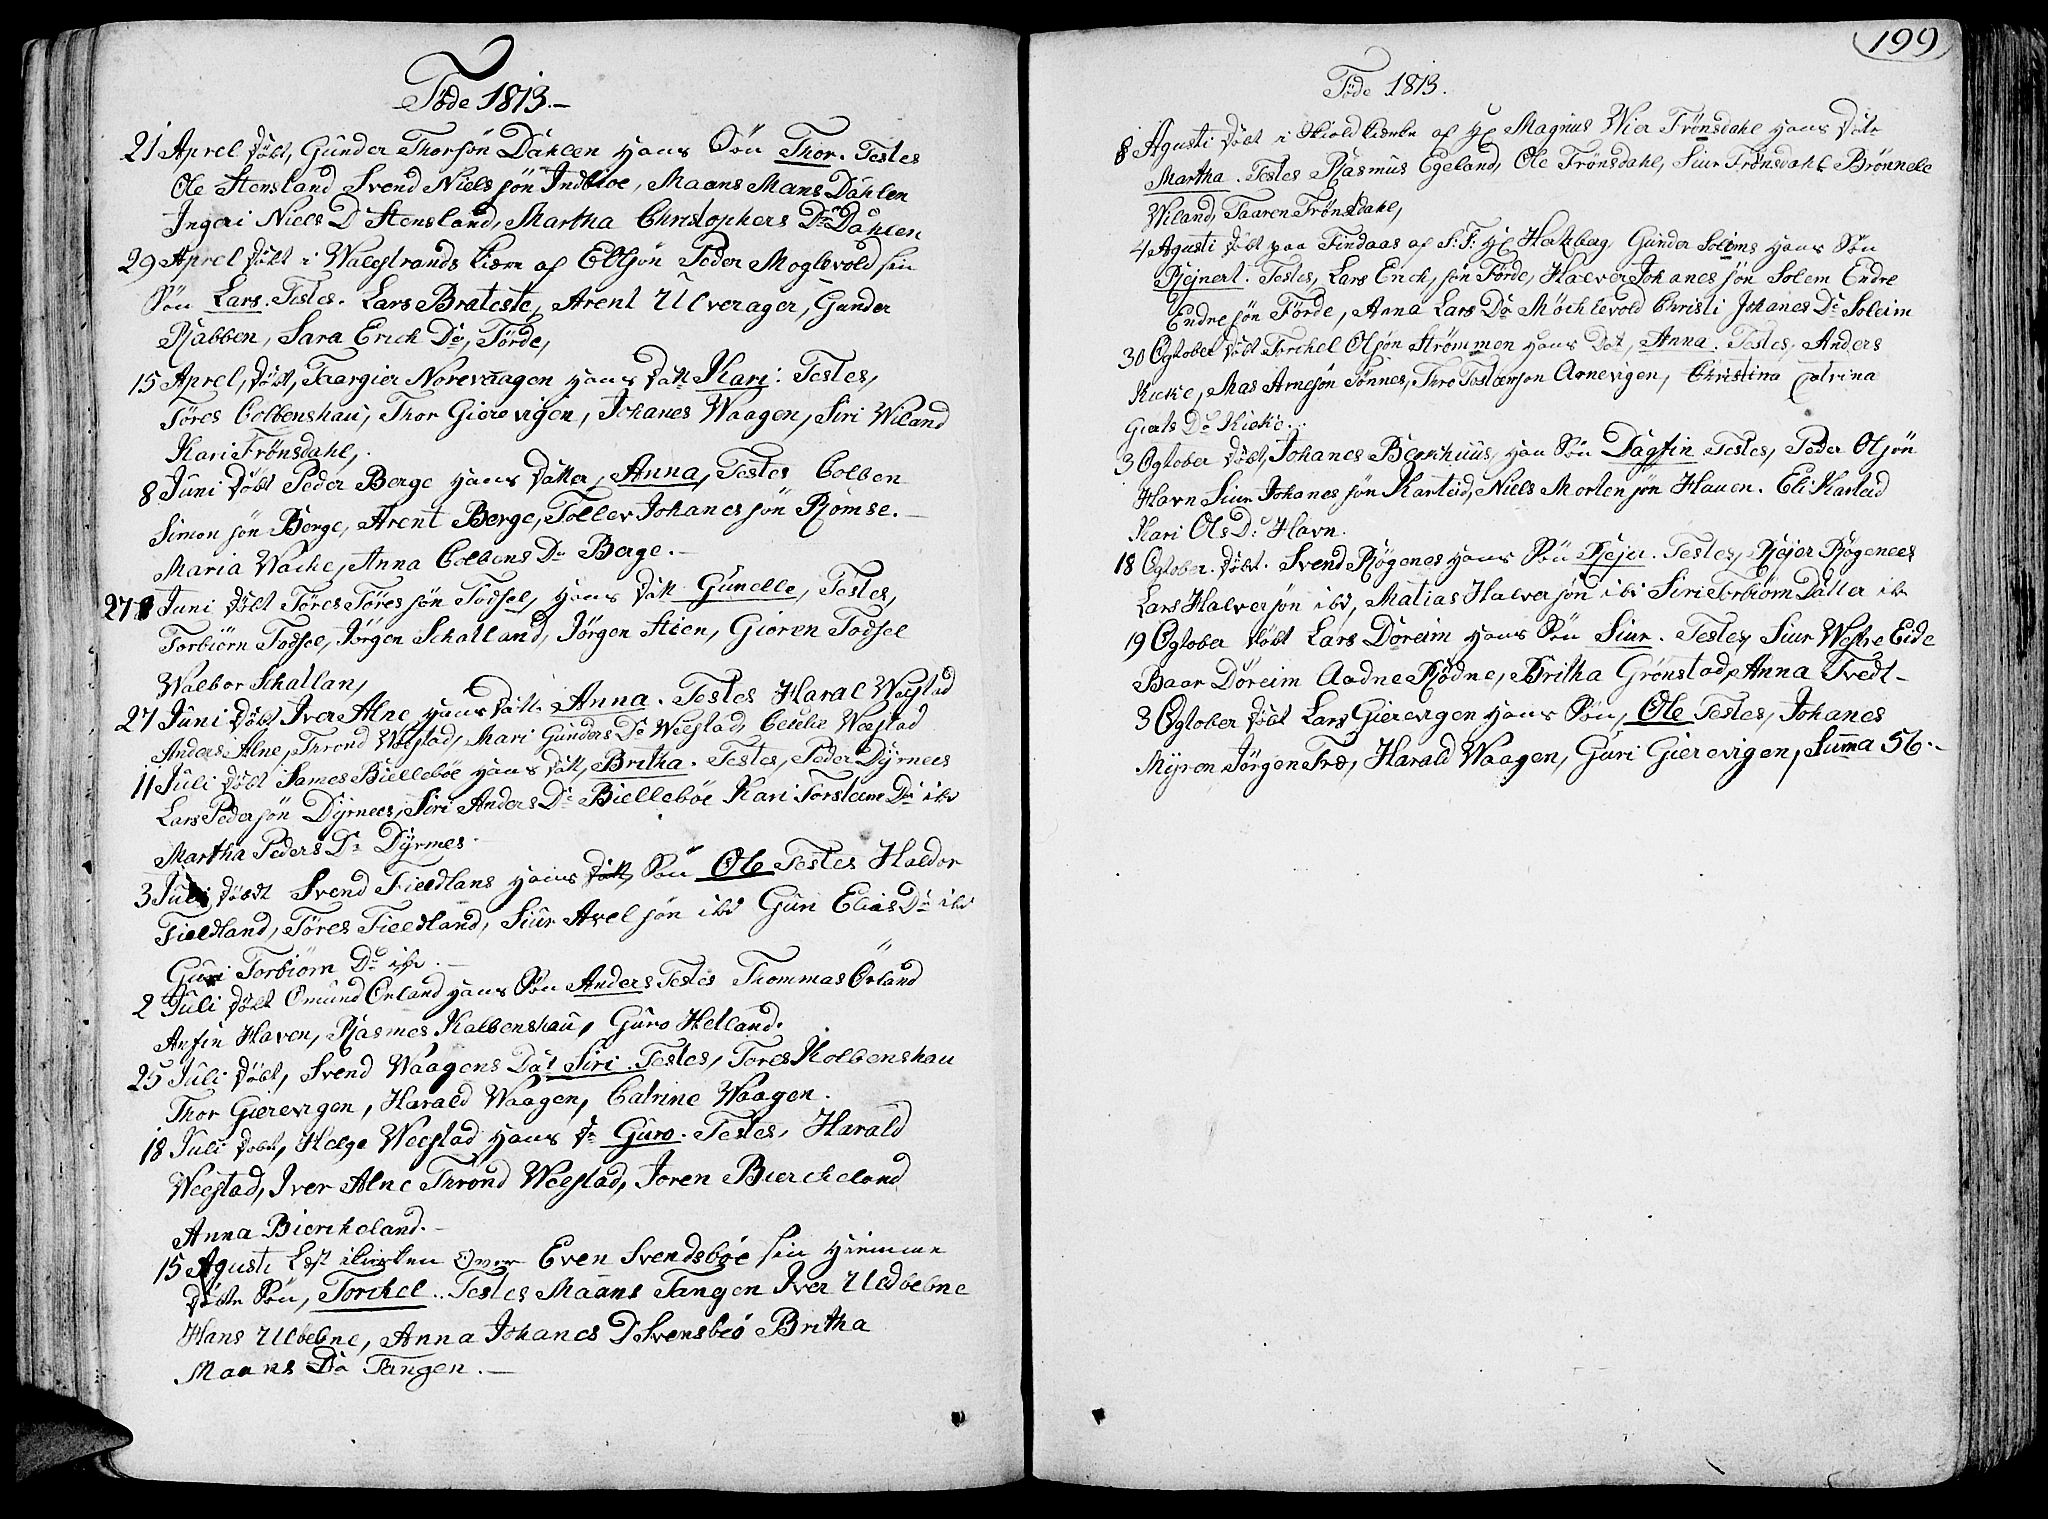 Föde 1813.-
21 Aprel döbt, Gunder Thorsön Dahlen hans Sön Thor. Testes
Ole Stensland Svend Nielssön Indbioe, Maans Mans Dahlen
Ingeri Niels D Stensland, Martha Christophers Dr Dahlen
29 Aprel döbt i Walestrands kirm af Eltsön Peder Moglevold sin
Sön Lars. Testes. Lars Brateste, Arent Ulverager, Gunder
Rabben, Sara Erich Dr, Förde,
15 Aprel, döbt, Taargier Norevaagen hans datt Kari. Testes,
Töres Colbenshau, Thor Gierevigen, Johanes Waagen, Siri Wiland
Kari Frönsdahl,
8 Juni döbt Peder Berge hans datter, Anna, Testes Colben
Simon sön Berge, Arent Berge, Tollev Johanes sön Römse.
Maria Wacke, Anna Colbens Dr Berge.-
27 Juni döbt Töres Töres sön Todsel, hans datt Gunelle, Testes,
Torbiörn Todsel, Jörgen Schalland, Jörgen Stien, Giören Todsel
Walbor Schallan,
27 Juni döbt Iver Alne hans datt. Anna. Testes Haral Weestad
Anders Alne, Thrond Weestad, Mari Gunders Dr Weestad, Cecelie Weestad
11 Juli döbt Sames Biellebøe hans datt, Britha. Testes, Peder Dyrnees
Lars Peder sön Dyrnees, Siri Anders Dr Biellebøe Kari Torsteen Dr ibd
Martha Peders Dr Dyrnes.
3 Juli, döbt Svend Fieldlans hans datt, Sön Ole Testes Haldor
Fieldland, Töres Fieldland, Siur Axel sön ibd Guri Elias Dr ibd
Guri Torbiörn Dr ibd.-
2 Juli döbt Omund Orland hans Sön Anders Testes Thommas Örland
Anfin Haven, Rasmes Kalbenshau, Guro Helland.
25 Juli döbt, Svend Waagens Dat Siri. Testes, Tores Kolbenshau
Thor Gierevigen, Harald Waagen, Catrine Waagen.
18 Juli döbt, Helge Weestad hans Dr Guro. Testes, Harald
Weestad, Iver Alne Thrond Weestad, Joren Bierckeland
Anna Bierckeland.-
15 Agusti Lest i kirken Over Even Svendsbøe sin hiemme
döbte Sön, Torckel.. Testes Maans Tangen Iver Uldbebne
Hans Uldbebne, Anna Johanes D Svensbeö Britha
Maans Dr Tangen.-
199
Föde 1813.
8 Agusti döbt i Skiold kierke af Hr Magnus Wier Frönsdahl hans date
Martha. Testes Rasmus Egeland, Ole Frönsdahl, Siur Frönsdahl Brönnele
Wiland, Taaren Frönsdahl,
4 Agusti döbt paa Findaas af S: T: Hr Halzbag Gunder Soleims hans Sön
Reinert. Testes, Lars Erich, sön Förde, Halver Johanes sön Solem Endre
Endre sön Förde, Anna Lars Dr Möchlevold Christi Johanes Dr Soleim
30 Ogtober döbt Torchel Olsön Strömmen hans Dat, Anna. Testes, Anders
Kieke, Mas Arnesön Sönnes, Thro Testensön Aanevigen, Christina Catrina
Gierts Dr Kieke..
3 Ogtober döbt, Johanes Berkhuus, han Sön Dagfin Testes, Peder Olsön
Havn Siur Johanes sön Karteid, Niels Morten sön Hauen. Eli Karteid
Kari Ols Dr Havn.
18 Ogtober. döbt. Svend Rögenes hans Sön Rejer. Testes, Rejer Rögenees
Lars Halver sön ibd, Matias Halver sön ibd Siri Torbiörn Datter ib
19 Ogtober döbt Lars Döreim hans Sön Siur. Testes, Siur Westre Eide
Baar Döreim Aadne Rödne, Britha Grönstad, Anna Tvedt-
3 Ogtober döbt Lars Gierevigen hans Sön, Ole Testes, Johanes
Myren Jörgen Træ, Harald Waagen, Guri Gierevigen, Summa 56.-